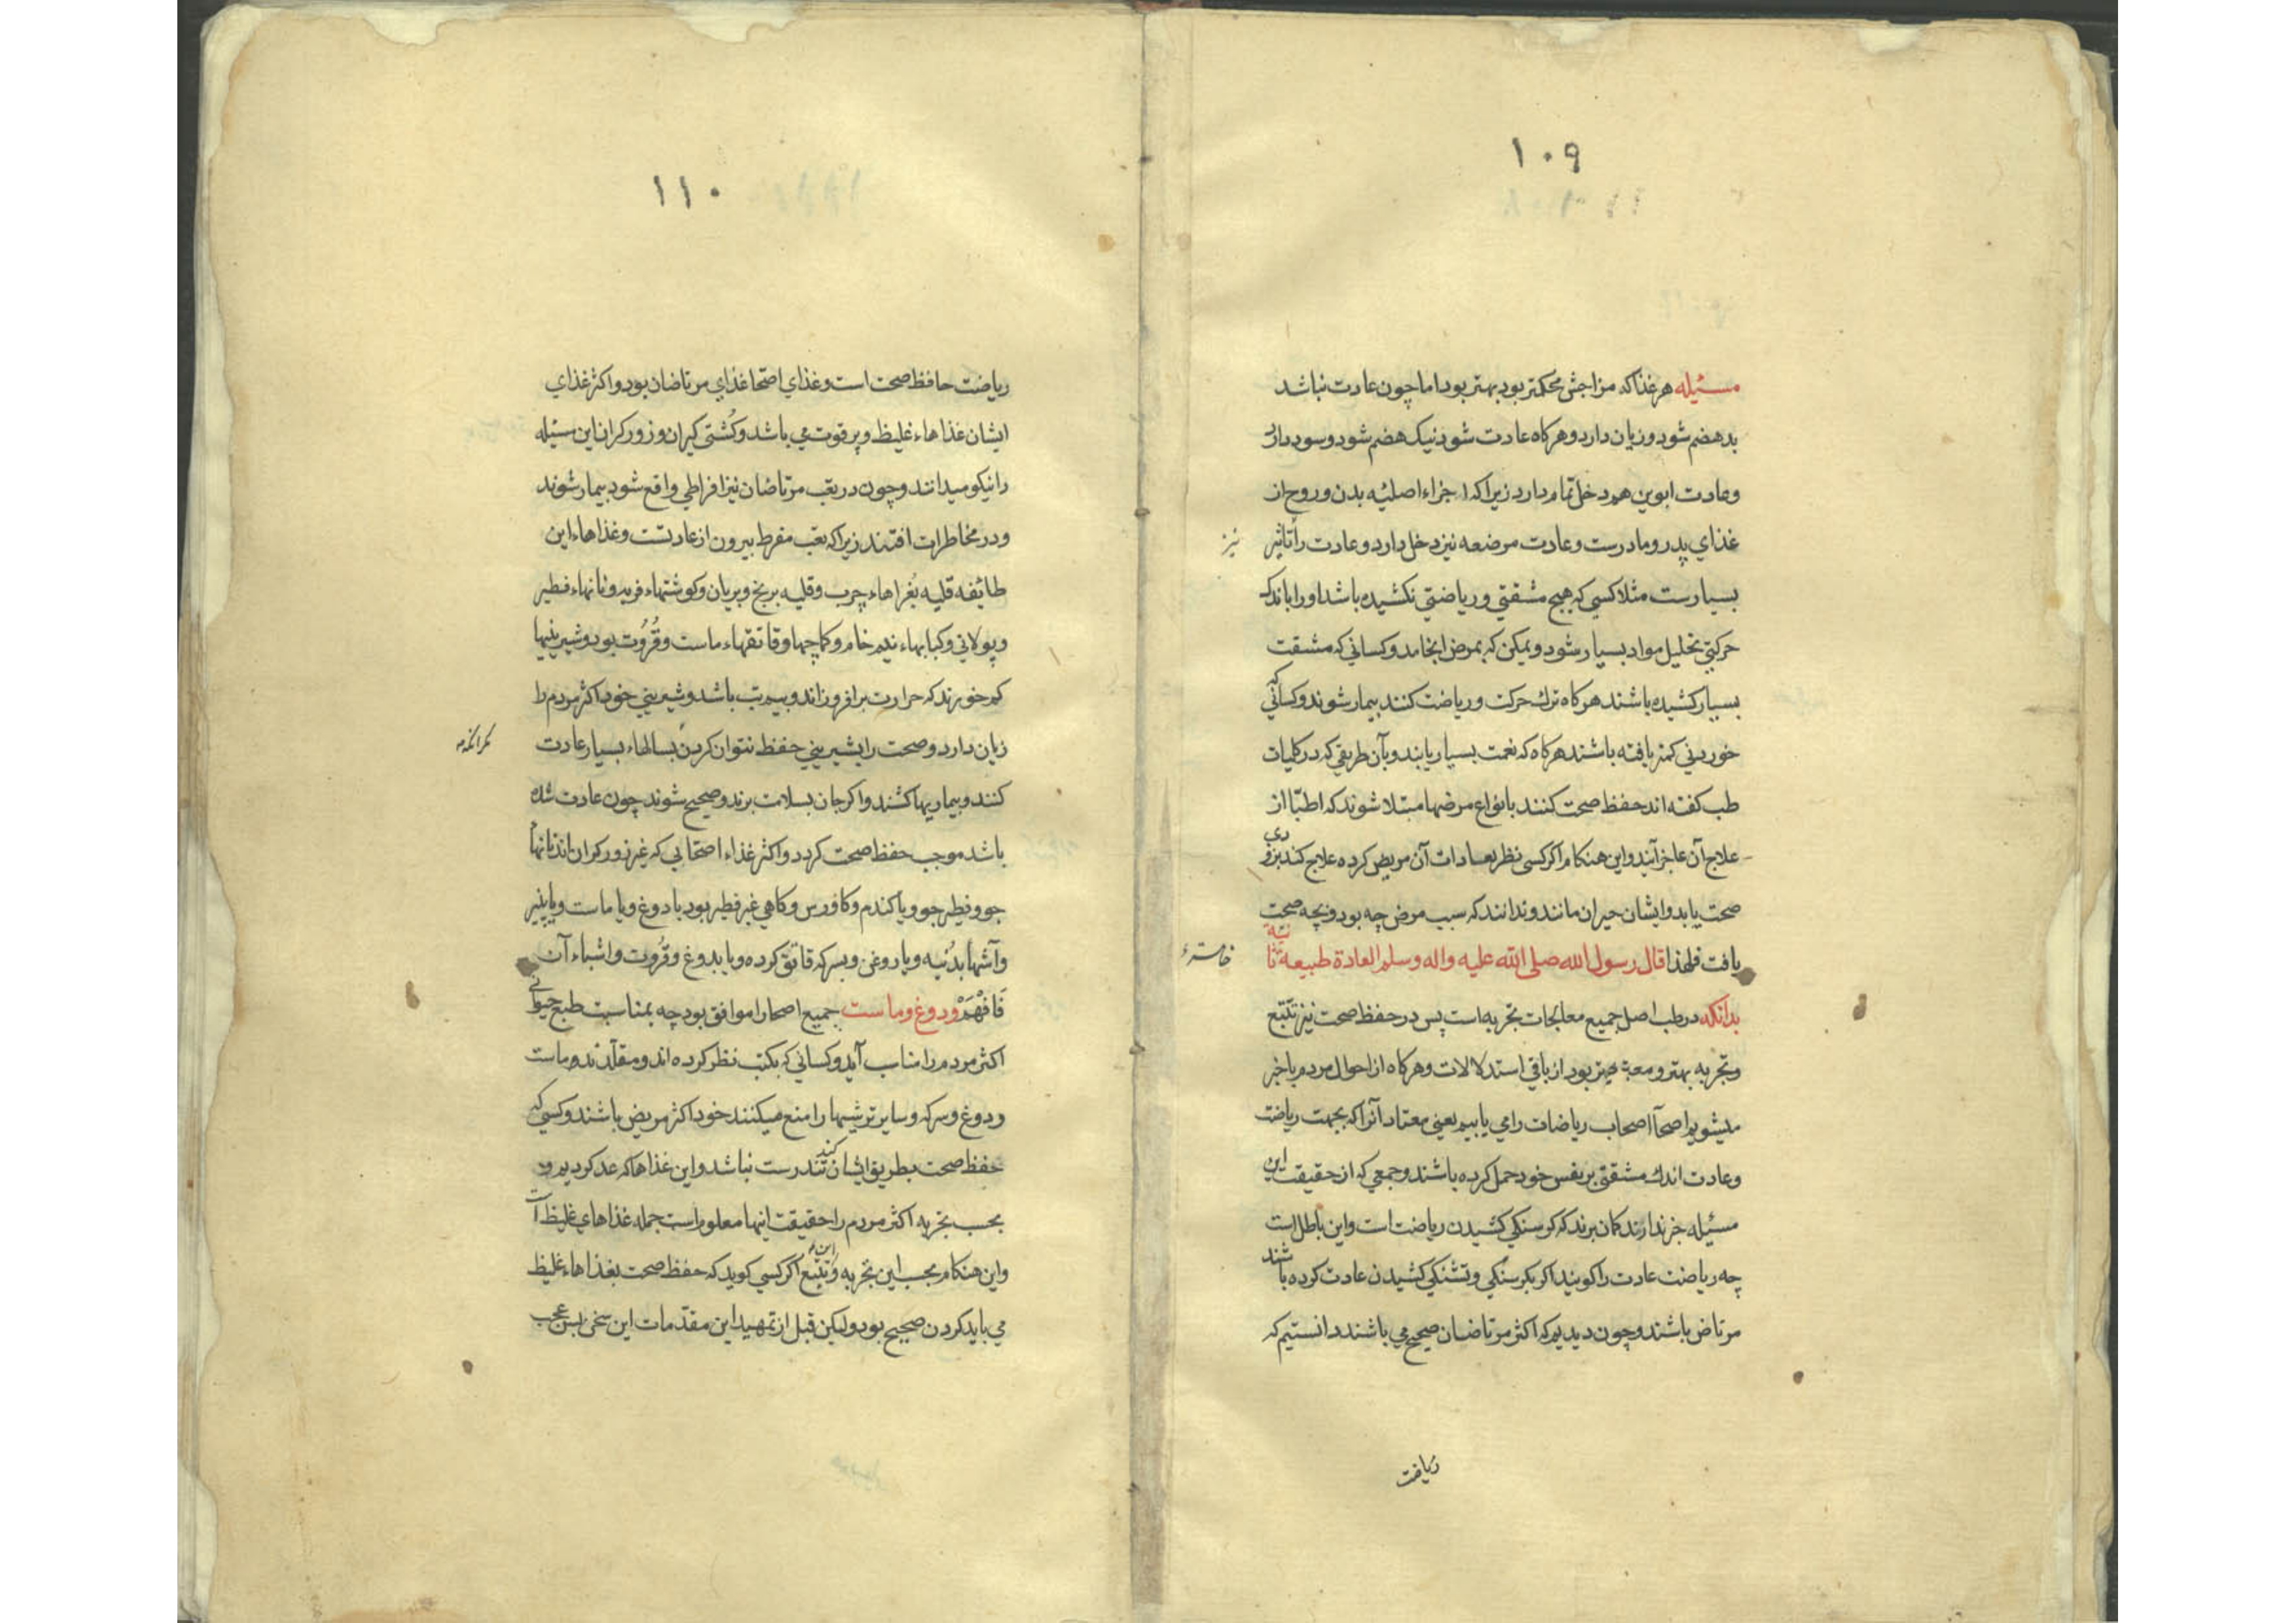 ۱۰۹
مسئیله هر غذا که مزاجش محکمتر بود بهتر بود اما چون عادت نباشد
بد هضم شود و زیان دارد و هر کاه عادت شود نیک هضم شود و سود دارد
و عادت ابوین هم دخل تمام دارد زیرا که اجزاء اصلیّه بدن و روح از
غذای پدر و مادرست و عادت مرضعه نیز دخل دارد و عادت را تاثیر
نیز
بسیارست مثلا کسی که هیچ مشقتی و ریاضتی نکشیده باشد او را باندک
حرکتی تحلیل مواد بسیار شود و یمکن که بمرض انجامد و کسانی که مشقت
بسیار کشیده باشند هر کاه ترك حرکت و ریاضت کنند بیمار شوند و کسانی که
خوردنی کمتر یافته باشند هر کاه که نعمت بسیار یابند و بآن طریقی که در کلیات
طب کفته اند حفظ صحت کنند بانواع مرضها مبتلا شوند که اطبّا از
علاج آن عاجز آیند و این هنکام اکر کسی نظر بعادات آن مریض کرده علاج کند بزودی
صحت یابد و ایشان حیران مانند و ندانند که سبب مرض چه بود و بچه صحت
یافت فلهذا قال رسول الله صلی الله علیه واله وسلم العادة طبیعه ثانیة
بدانکه در طب اصل جمیع معالجات تجربه است پس در حفظ صحت نیز تتبّع
و تجربه بهتر و معتبرتر بود از باقی استدلالات و هر کاه از احوال مردم باخبر
میشویم اصحّاء اصحاب ریاضات را می یابیم یعنی معتاد آنرا که بجهت ریاضت
و عادت اندك مشقتی بر نفس خود حمل کرده باشند و جمعی که از حقیقت این
مسئیله خبر ندارند کمان برند که کرسنکی کشیدن ریاضت است و این باطل است
چه ریاضت عادت را کویند اکر بکرسنکی و تشنکی کشیدن عادت کرده باشند
مرتاض باشند و چون دیدیم که اکثر مرتاضان صحیح می باشند دانستیم که
ریاضت
۱۱۰
ریاضت حافظ صحت است و غذای اصحّا غذای مرتاضان بود و اکثر غذای
ایشان غذاهاء غلیظ و پر قوت می باشد و کُشتی کیران و زورکران این مسئیله
را نیکو میدانند و چون در تعب مرتاضان نیز افراطی واقع شود بیمار شوند
و در مخاطرات افتند زیرا که تعب مفرط بیرون از عادتست و غذاهاء این
طائفه قلیه بُغراهاء چرب و قلیه برنج و بریان و کوشتهاء فربه و نانهاء فطیر
و پولانی و کبابهاء نیم خام و کماچها و قاتقهاء ماست و قُرُوُت بود و شیرینیها
کم خورند که حرارت برافروزاند و بیم تب باشد و شیرینی خود اکثر مردم را
زیان دارد و صحت را بشیرینی حفظ نتوان کردن بسالهاء بسیار عادت
مکر آنکه
کنند و بیماریها کشند و اکر جان بسلامت برند و صحیح شوند چون عادت شده
باشد موجب حفظ صحت کردد و اکثر غذاء اصحّایی که غیر زورکران اند نانها
جو و فطیر جو و یا کندم و کاورس و کاهی غیر فطیر بود با دوغ و یا ماست و یا پنیر
و آشها بدُنبه و یا روغن و بسرکه قاتق کرده و یا بدوغ و قُرُوت و اشباء آن
فَافْهَمْ و دوغ و ماست جمیع اصحا را موافق بود چه بمناسبت طبع حیوانی
اکثر مردم را مناسب آید و کسانی که بکتب نظر کرده اند و مقلّدند و ماست
و دوغ و سرکه و سایر ترشیها را منع میکنند خود اکثر مریض باشند و کسی که
حفظ صحت بطریق ایشان کند تندرست نباشد و این غذاها که عد کردیم و
بحسب تجربه اکثر مردم را حقیقت اینها معلوم است جمله غذاهای غلیظ است
و این هنکام بحسب این تجربه و این تتبّع اکر کسی کوید که حفظ صحت بغذاهاء غلیظ
می باید کردن صحیح بود ولیکن قبل از تمهید این مقدّمات این سخن بس عجب